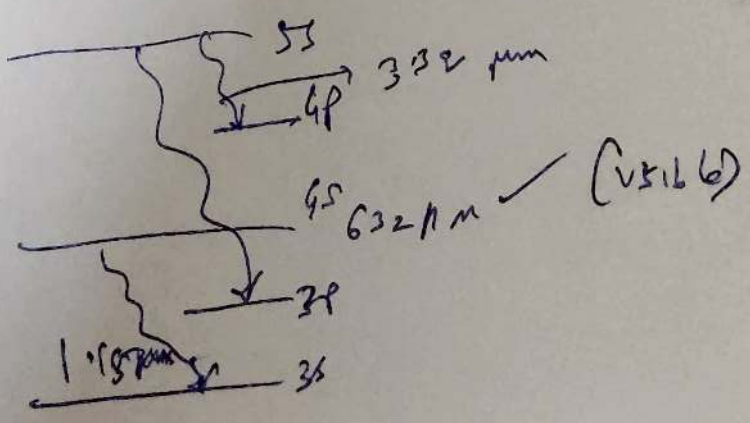 5S
3.32 μm
4P
4S 632 nm ✓ (visible)
3P
1.15 μm
3S